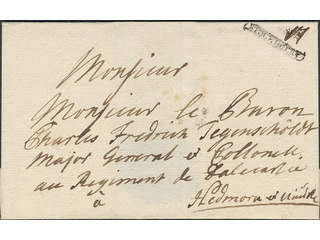 Monsieur
Monsieur le Baron
Charles Fredrich Tegenschöldt
Major General et Collonell
au Regiment de Dalecarlie
à
Hedmora et